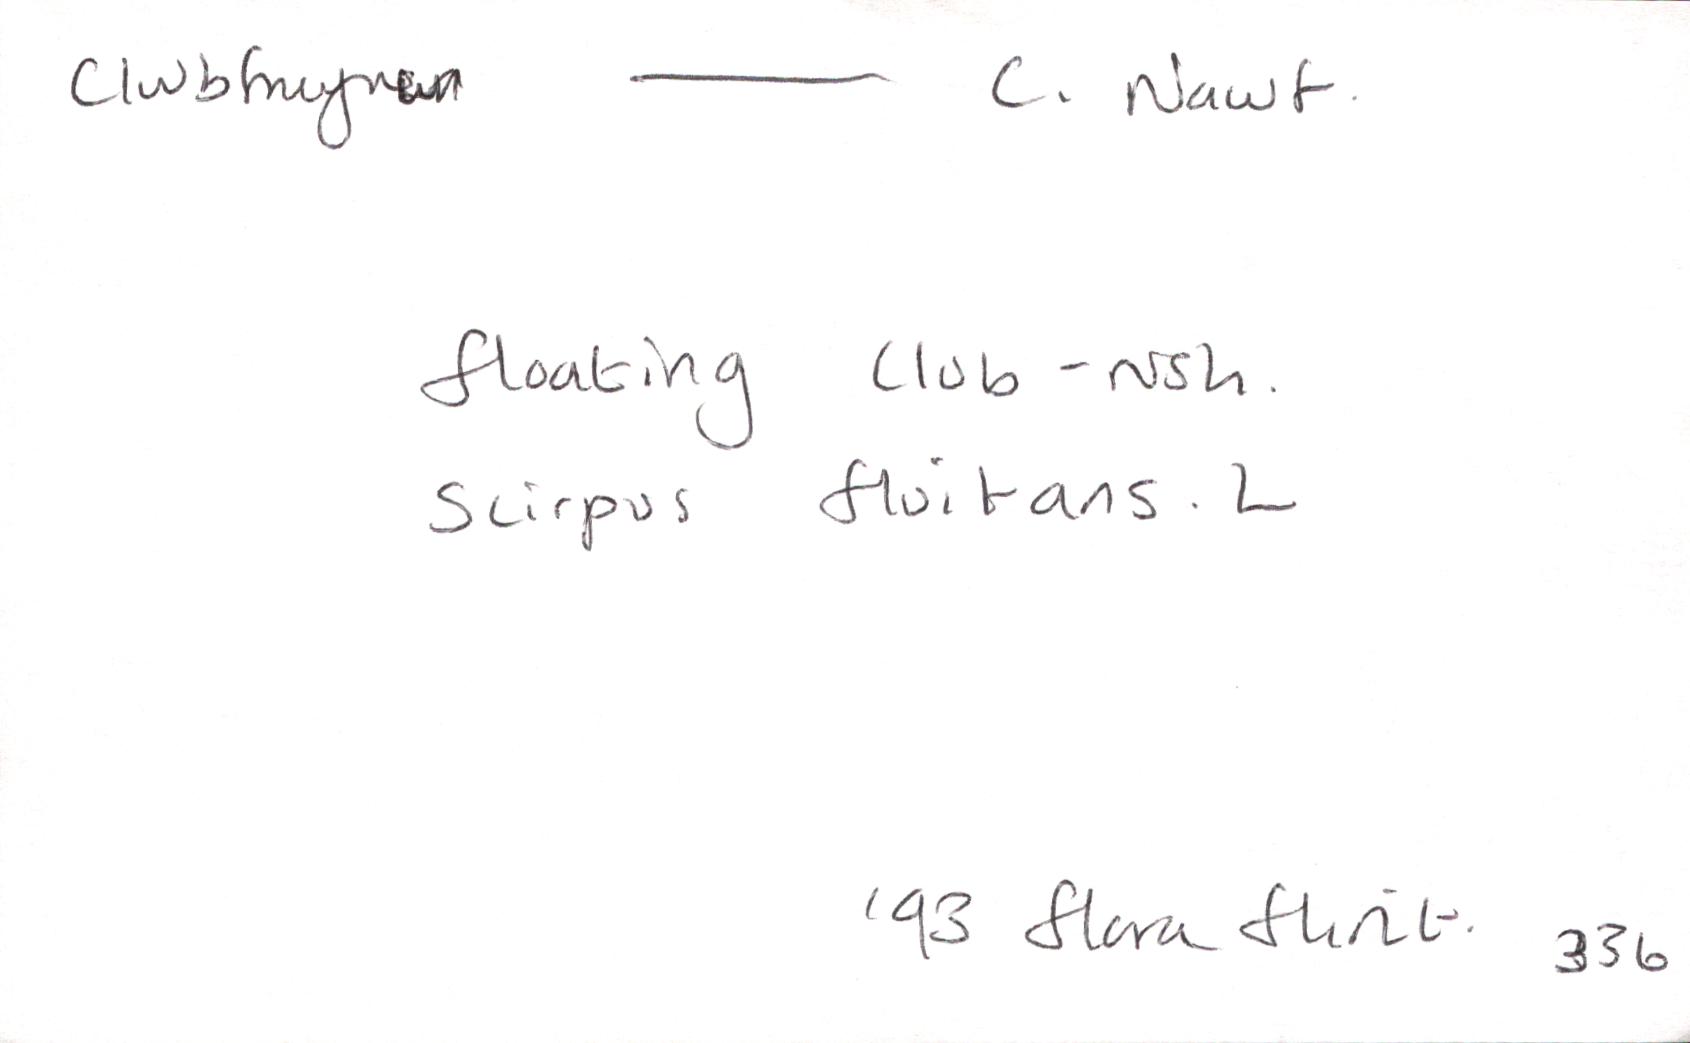 Clwbfrwynen — C. Nawf.
floating club-rush.
Scirpus fluitans. L
'93 flora fflint. 336